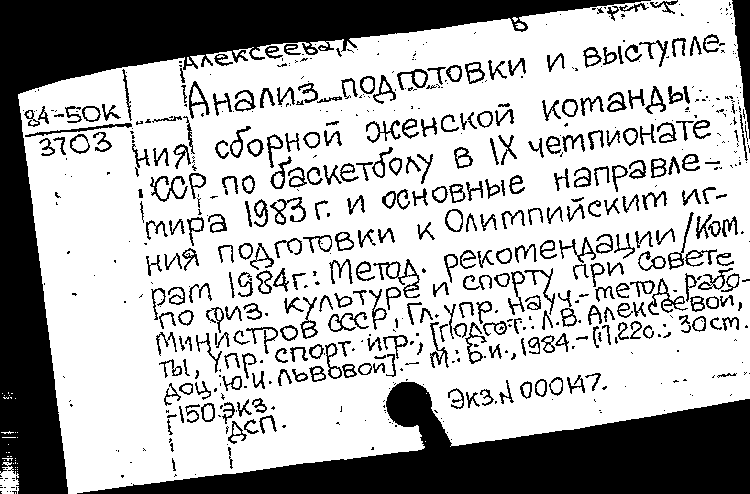 В
Алексеева, Л
84-50К
3703
Анализ подготовки и выступле-
ния сборной женской команды
СССР по баскетболу в IX чемпионате
мира 1983 г. и основные направле-
ния подготовки к Олимпийским иг-
рам 1984 г.: Метод. рекомендации / Ком.
по физ. культуре и спорту при Совете
Министров СССР, Гл. упр. науч.-метод. рабо-
ты, Упр. спорт. игр.; [Подгот.: Л.В. Алексеевой,
доц. Ю.И. Львовой]. - М.: Б.и., 1984. - [1], 22 с.; 30 см. -
-150 экз.
ДСП.
Экз. N 000147.